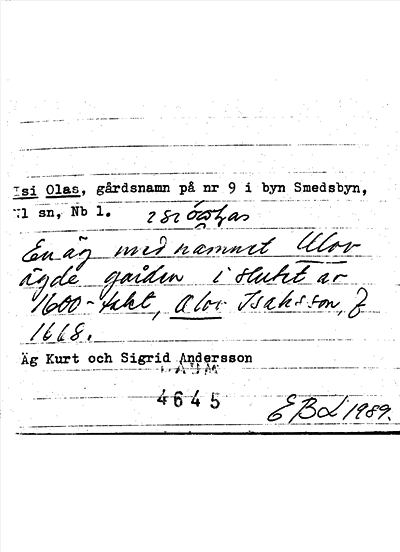 Isi Olas, gårdsnamn på nr 9 i byn Smedsbyn,
sn, Nb l.
En äg med namnet Olov
ägde gården i slutet av
1600-talet, Olov Isaksson, f
1668.
Äg Kurt och Sigrid Andersson
DAUM
4645
EBL 1989.